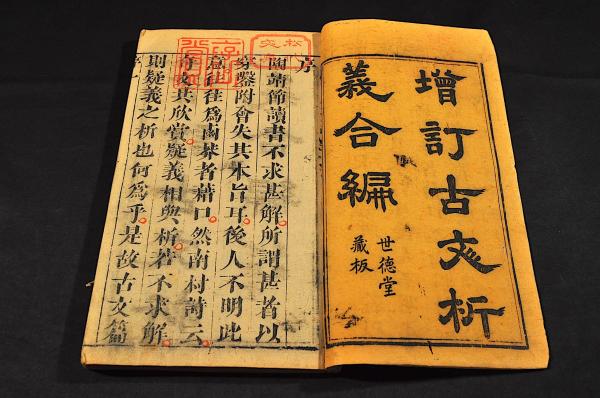 增訂古文析
義合編
世德堂
藏板
序
陶靖節讀書不求甚解所謂甚者以
穿鑿附會失其本旨耳後人不明此
意往往爲鹵莽者藉口然南村詩云
奇文共欣賞疑義相與析若不求解
則疑義之析也何爲乎是故古文篇
序一